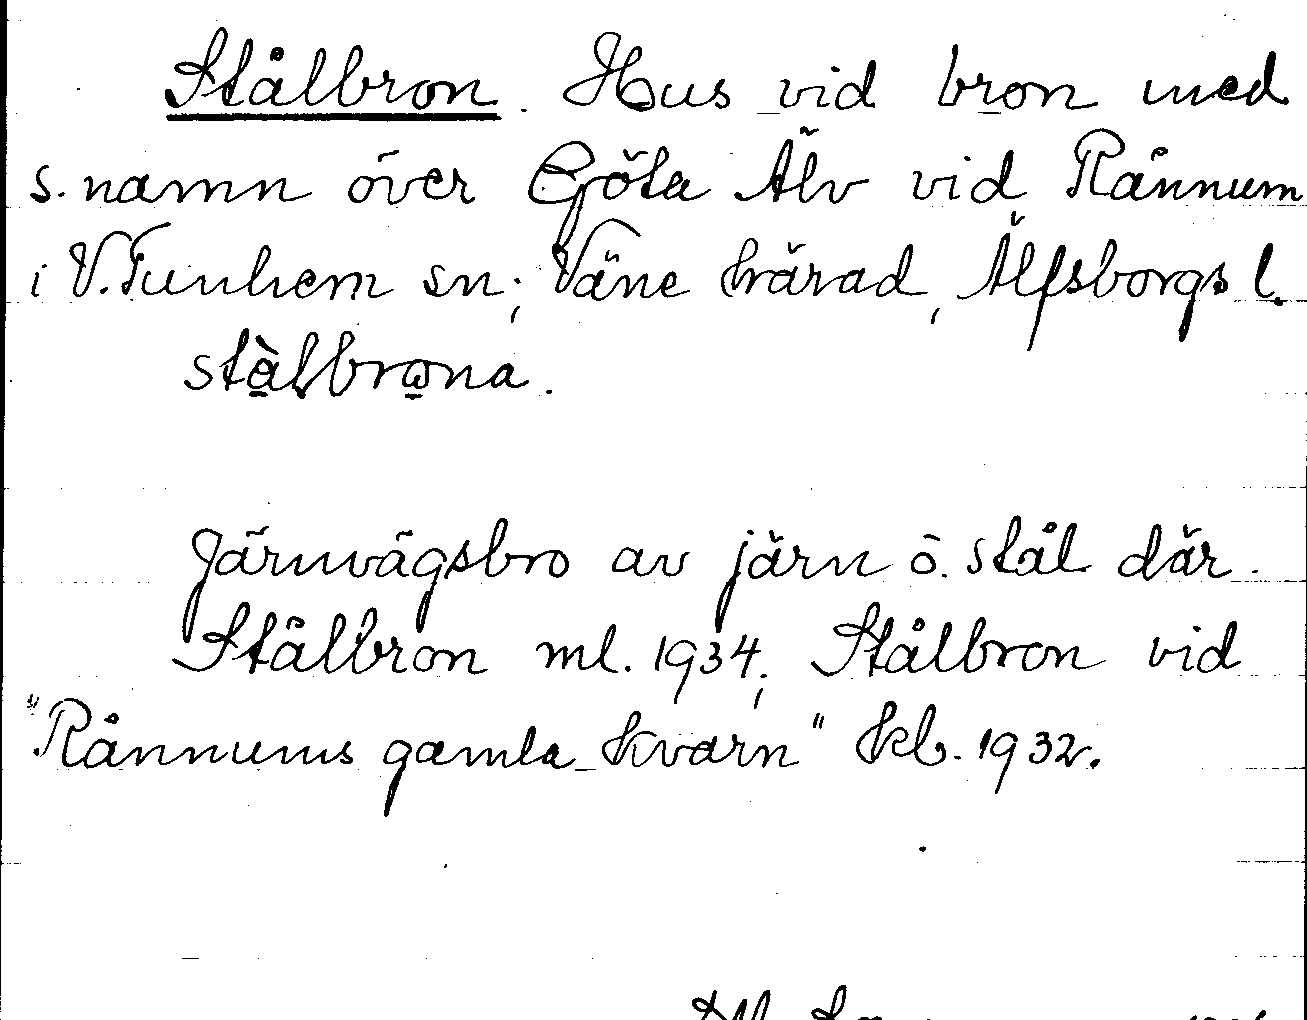 Stålbron. Hus vid bron med
s. namn över Göta Älv vid Rånnum
i V. Tunhem sn; Väne härad, Älfsborgs l.
stålbrona.
Järnvägsbro av järn o. stål där.
Stålbron ml. 1934; Stålbron vid
"Rånnums gamla kvarn" kb. 1932.